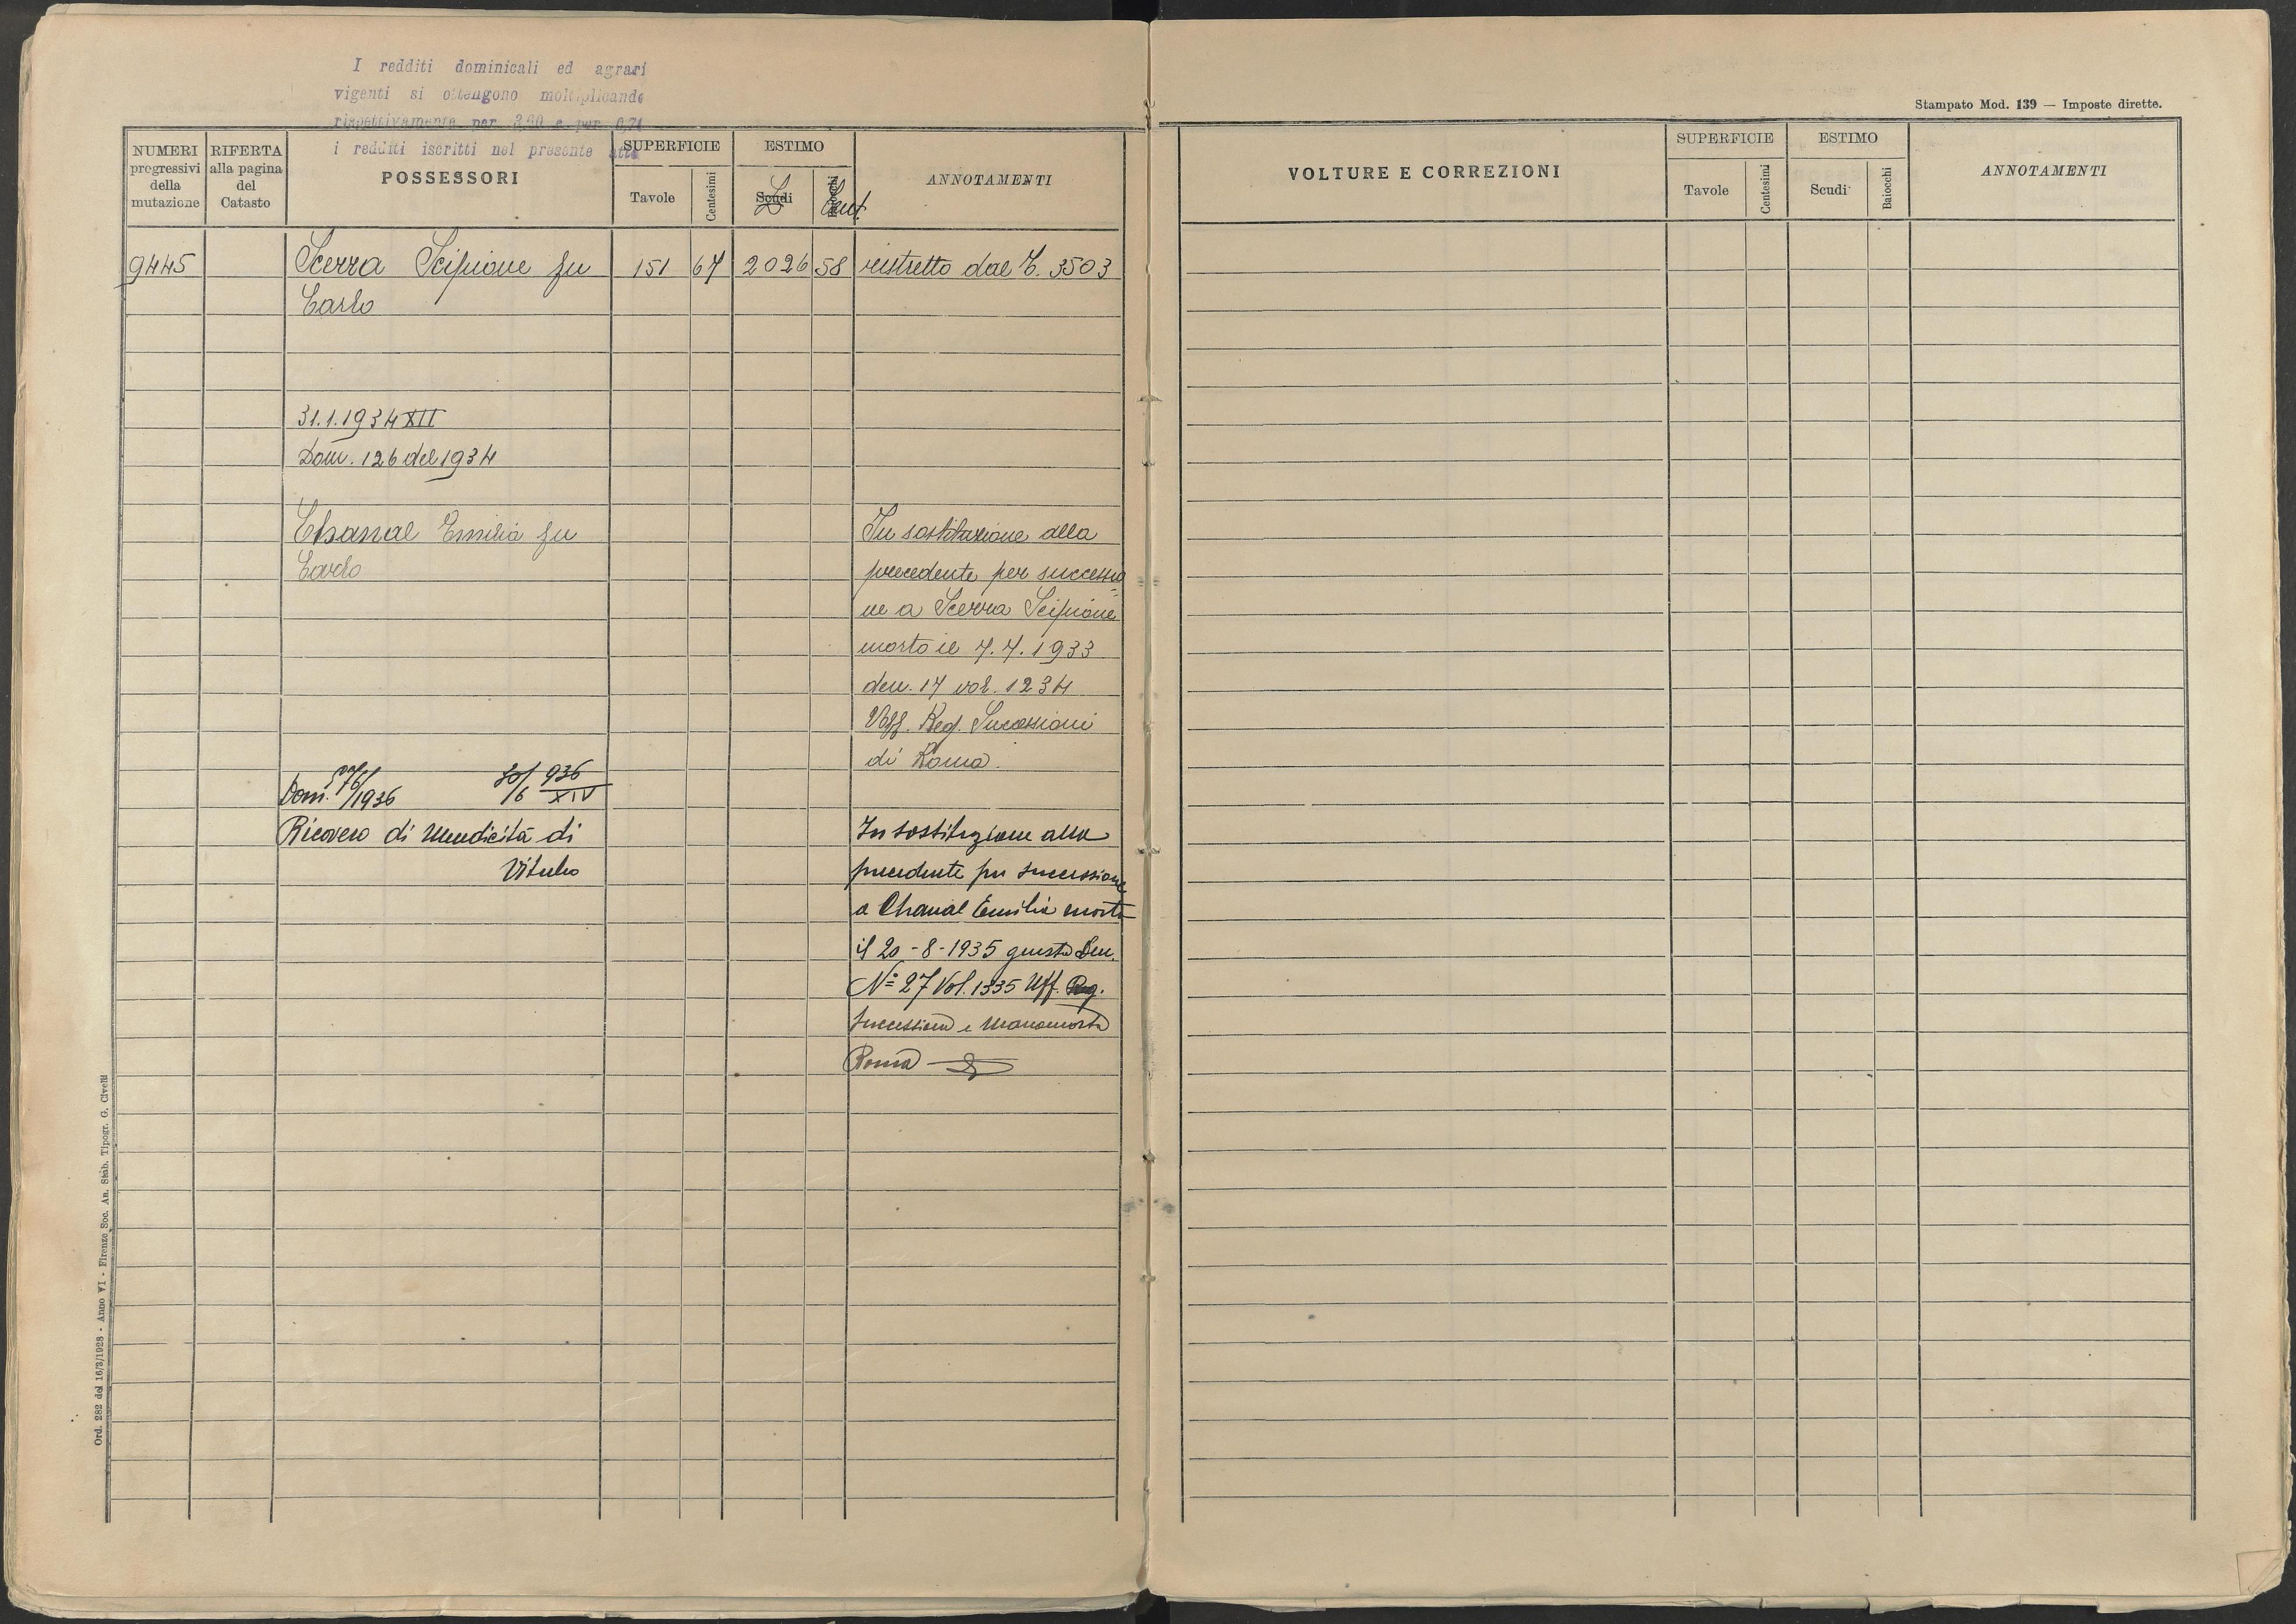 I redditi dominicali ed agrari
vigenti si ottengono moltiplicando
rispettivamente per e per
i redditi iscritti nel presente atto
Stampato Mod. 139 — Imposte dirette.
NUMERI progressivi della mutazione
RIFERTA alla pagina del Catasto
POSSESSORI
SUPERFICIE
Tavole
Centesimi
ESTIMO
Scudi L
Baiocchi Cent.
ANNOTAMENTI
VOLTURE E CORREZIONI
SUPERFICIE
Tavole
Centesimi
ESTIMO
Scudi
Baiocchi
ANNOTAMENTI
9445 Scerra Scipione fu 151 67 2026 58 ristretto dal T. 3503
Carlo
31.1.1934 XII
Dom. 126 del 1934
Chanal Emilia fu
Carlo
In sostituzione alla
precedente per successio
ne a Scerra Scipione
morto il 7.7.1933
den. 17 vol. 1234
Uff. Reg. Successioni
di Roma.
Dom. 576/1936 30/6 936 XIV
Ricovero di Mendicità di
In sostituzione alla
precedente per successione
a Chanal Emilia morta
il 20-8-1935 giusta Den.
N° 27 Vol. 1335 Uff. Reg.
Successioni e Manomorta
Roma
Ord. 282 del 16/3/1928 - Anno VI - Firenze, Soc. An. Stab. Tipogr. G. Civelli